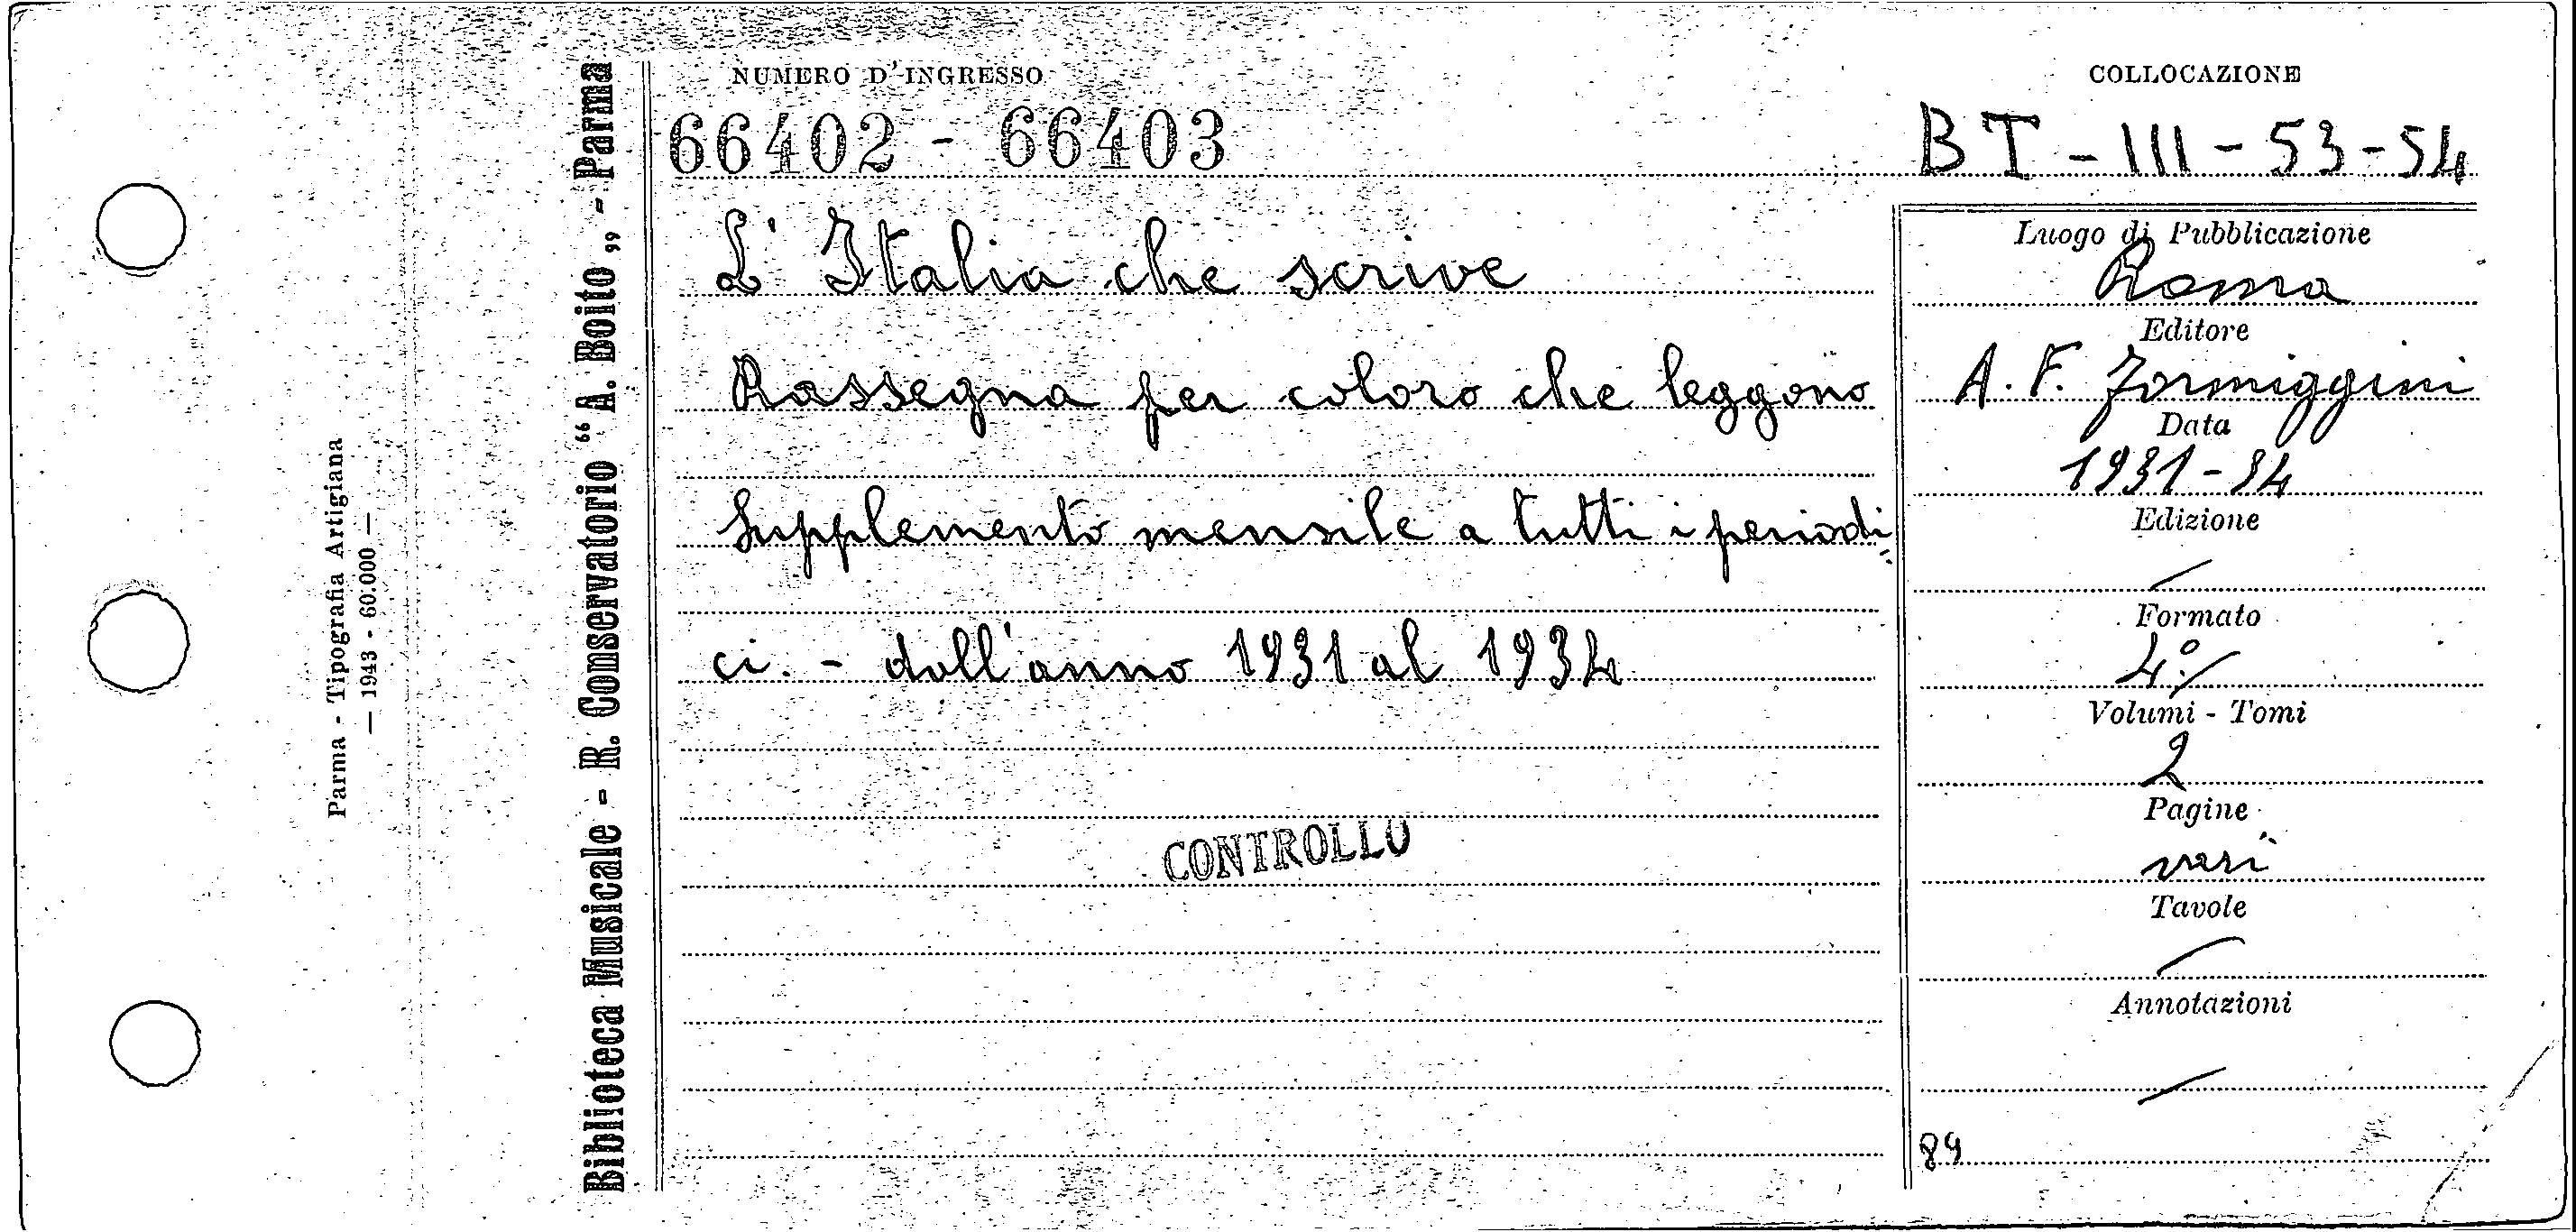 Parma - Tipografia Artigiana
— 1943 - 60.000 —
Biblioteca Musicale - R. Conservatorio “A. Boito„ - Parma
NUMERO D'INGRESSO
66402 - 66403
COLLOCAZIONE
BT - III - 53 - 54
L'Italia che scrive
Rassegna per coloro che leggono
Supplemento mensile a tutti i periodi=
ci. - dall'anno 1931 al 1934
CONTROLLO
Luogo di Pubblicazione
Roma
Editore
A. F. Formiggini
Data
1931-34
Edizione
Formato
4°
Volumi - Tomi
2
Pagine
vari
Tavole
Annotazioni
89